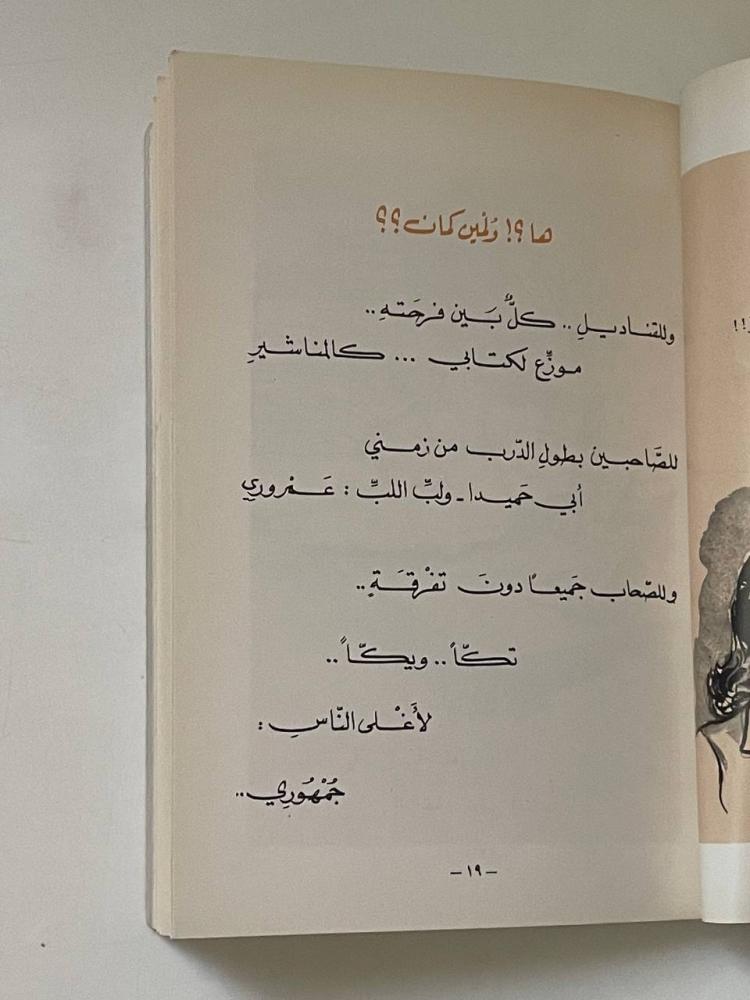 ها ؟! وُلْمين كمان ؟؟
وللقناديلِ .. كلٌّ بَين فرحَتهِ ..
موزِّع لكتابي ... كالمناشيرِ
للصَّاحبين بطولِ الدّرب من زمني
أبي حَميدا - ولبِّ اللبِّ : عَمْروري
وللصّحاب جَميعاً دونَ تفْرقَةٍ ..
تكّاً .. ويكّاً ..
لأَغْلى النّاسِ :
جُمْهُورِي ..
- ١٩ -
!!